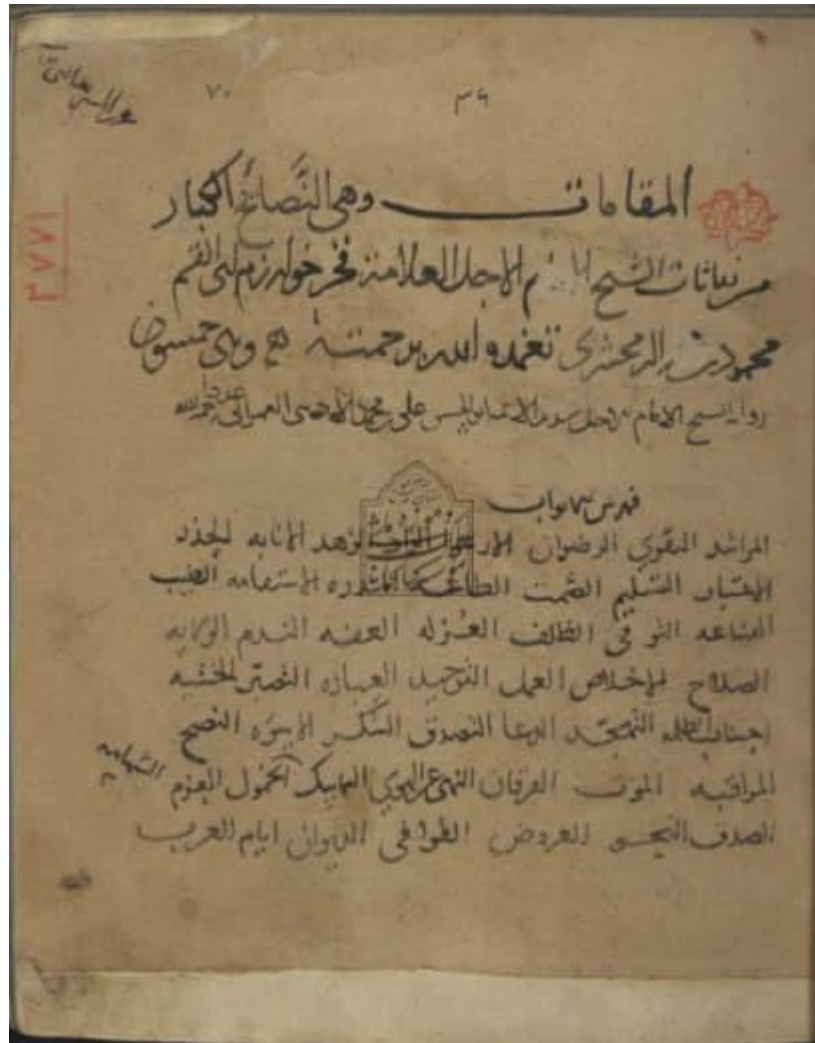 ٧٠ ٣٦
المقامات وهي النصائح الكبار
من نفاثات الشيخ الامام الاجل العلامة فخر خوارزم ابي القسم
محمود بن الزمخشري تغمده الله برحمته وهي خمسون
رواية الشيخ الامام علي بن محمد العمراني رحمه الله
٣٧٧١
فهرس
المراشد التقوي الرضوان الارعوا الزاد الزهد الانابه الحذر
الاعتبار التسليم الصمت الطاعة المنذره الاستقامه الطيب
القناعه التوقي الظلف العزله العفه الندم الولايه
الصلاح الاخلاص العمل التوحيد العباده التصبر الخشيه
اجتناب الظلمه التهجد الدعا التصدق الشكر الاسوه النصح
المراقبه الموت الفرقان النهي عن الهوي التماسك الخمول العزم
الشهامه
الصدق النحو العروض القوافي الديوان ايام العرب